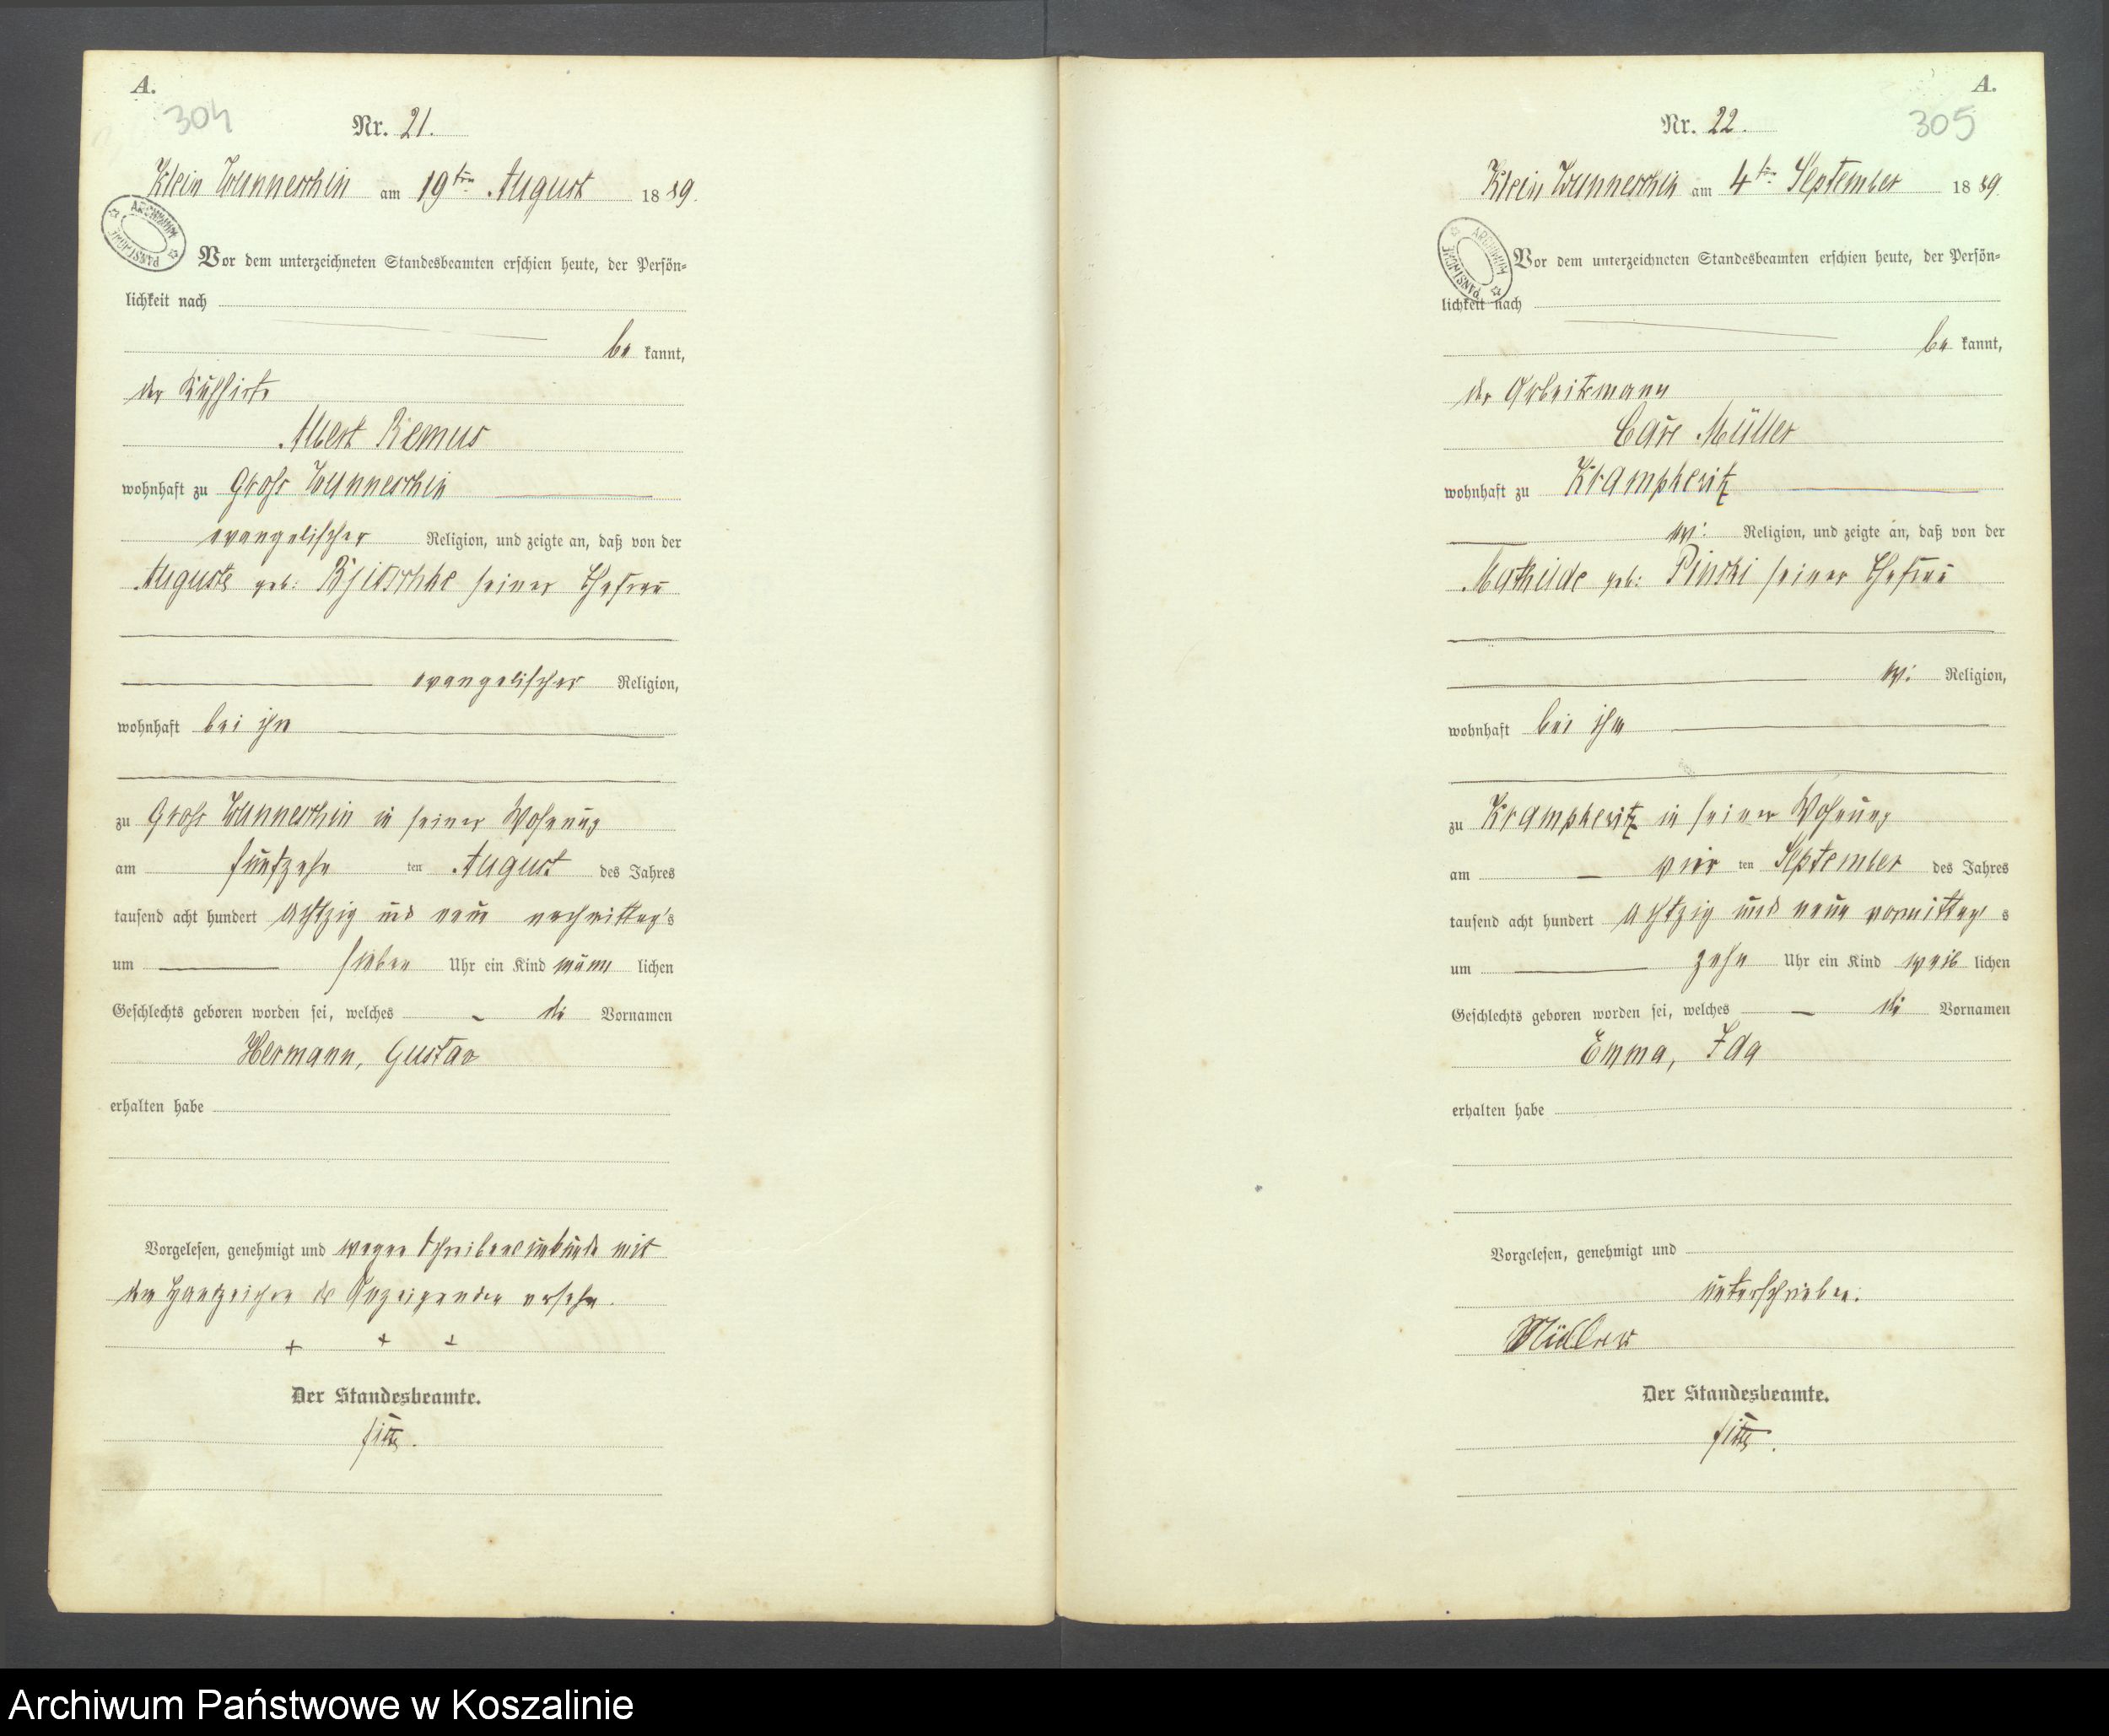 A.
304
Nr. 21.
Klein Wunneschin am 19ten August 1889.
ARCHIWUM PAŃSTWOWE
Vor dem unterzeichneten Standesbeamten erschien heute, der Persön-
lichkeit nach
be kannt,
der Kuhhirte
Albert Remus
wohnhaft zu Gross Wunneschin
evangelischer Religion, und zeigte an, daß von der
Auguste geb: seiner Ehefrau
evangelischer Religion,
wohnhaft bei ihm
zu Gross Wunneschin in seiner Wohnung
am fünfzehn ten August des Jahres
tausend acht hundert achtzig und neun nachmittag's
um sieben Uhr ein Kind männ lichen
Geschlechts geboren worden sei, welches die Vornamen
Hermann, Gustav
erhalten habe
Vorgelesen, genehmigt und wegen Schreibensunkunde mit
dem Handzeichen des Anzeigenden versehn.
+ + +
Der Standesbeamte.
A.
305
Nr. 22.
Klein Wunneschin am 4ten September 1889.
ARCHIWUM PAŃSTWOWE
Vor dem unterzeichneten Standesbeamten erschien heute, der Persön-
lichkeit nach
be kannt,
der Arbeitsmann
Carl Müller
wohnhaft zu Krampkewitz
ev: Religion, und zeigte an, daß von der
Mathilde geb: Pinski seiner Ehefrau
ev: Religion,
wohnhaft bei ihm
zu Krampkewitz in seiner Wohnung
am vier ten September des Jahres
tausend acht hundert achtzig und neun vormittag s
um zehn Uhr ein Kind weib lichen
Geschlechts geboren worden sei, welches die Vornamen
Emma, Ida
erhalten habe
Vorgelesen, genehmigt und
unterschrieben.
Müller
Der Standesbeamte.
Archiwum Państwowe w Koszalinie